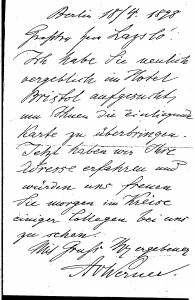 Berlin 18/4. 1898
Geehrter Herr László!
Ich habe Sie neulich
vergeblich im Hotel
Bristol aufgesucht,
um Ihnen die einliegende
Karte zu überbringen.
Jetzt haben wir Ihre
Adresse erfahren und
würden uns freuen
Sie morgen im Kreise
einiger Collegen bei uns
zu sehen.
Mit Gruß Ihr ergebener
AvWerner.